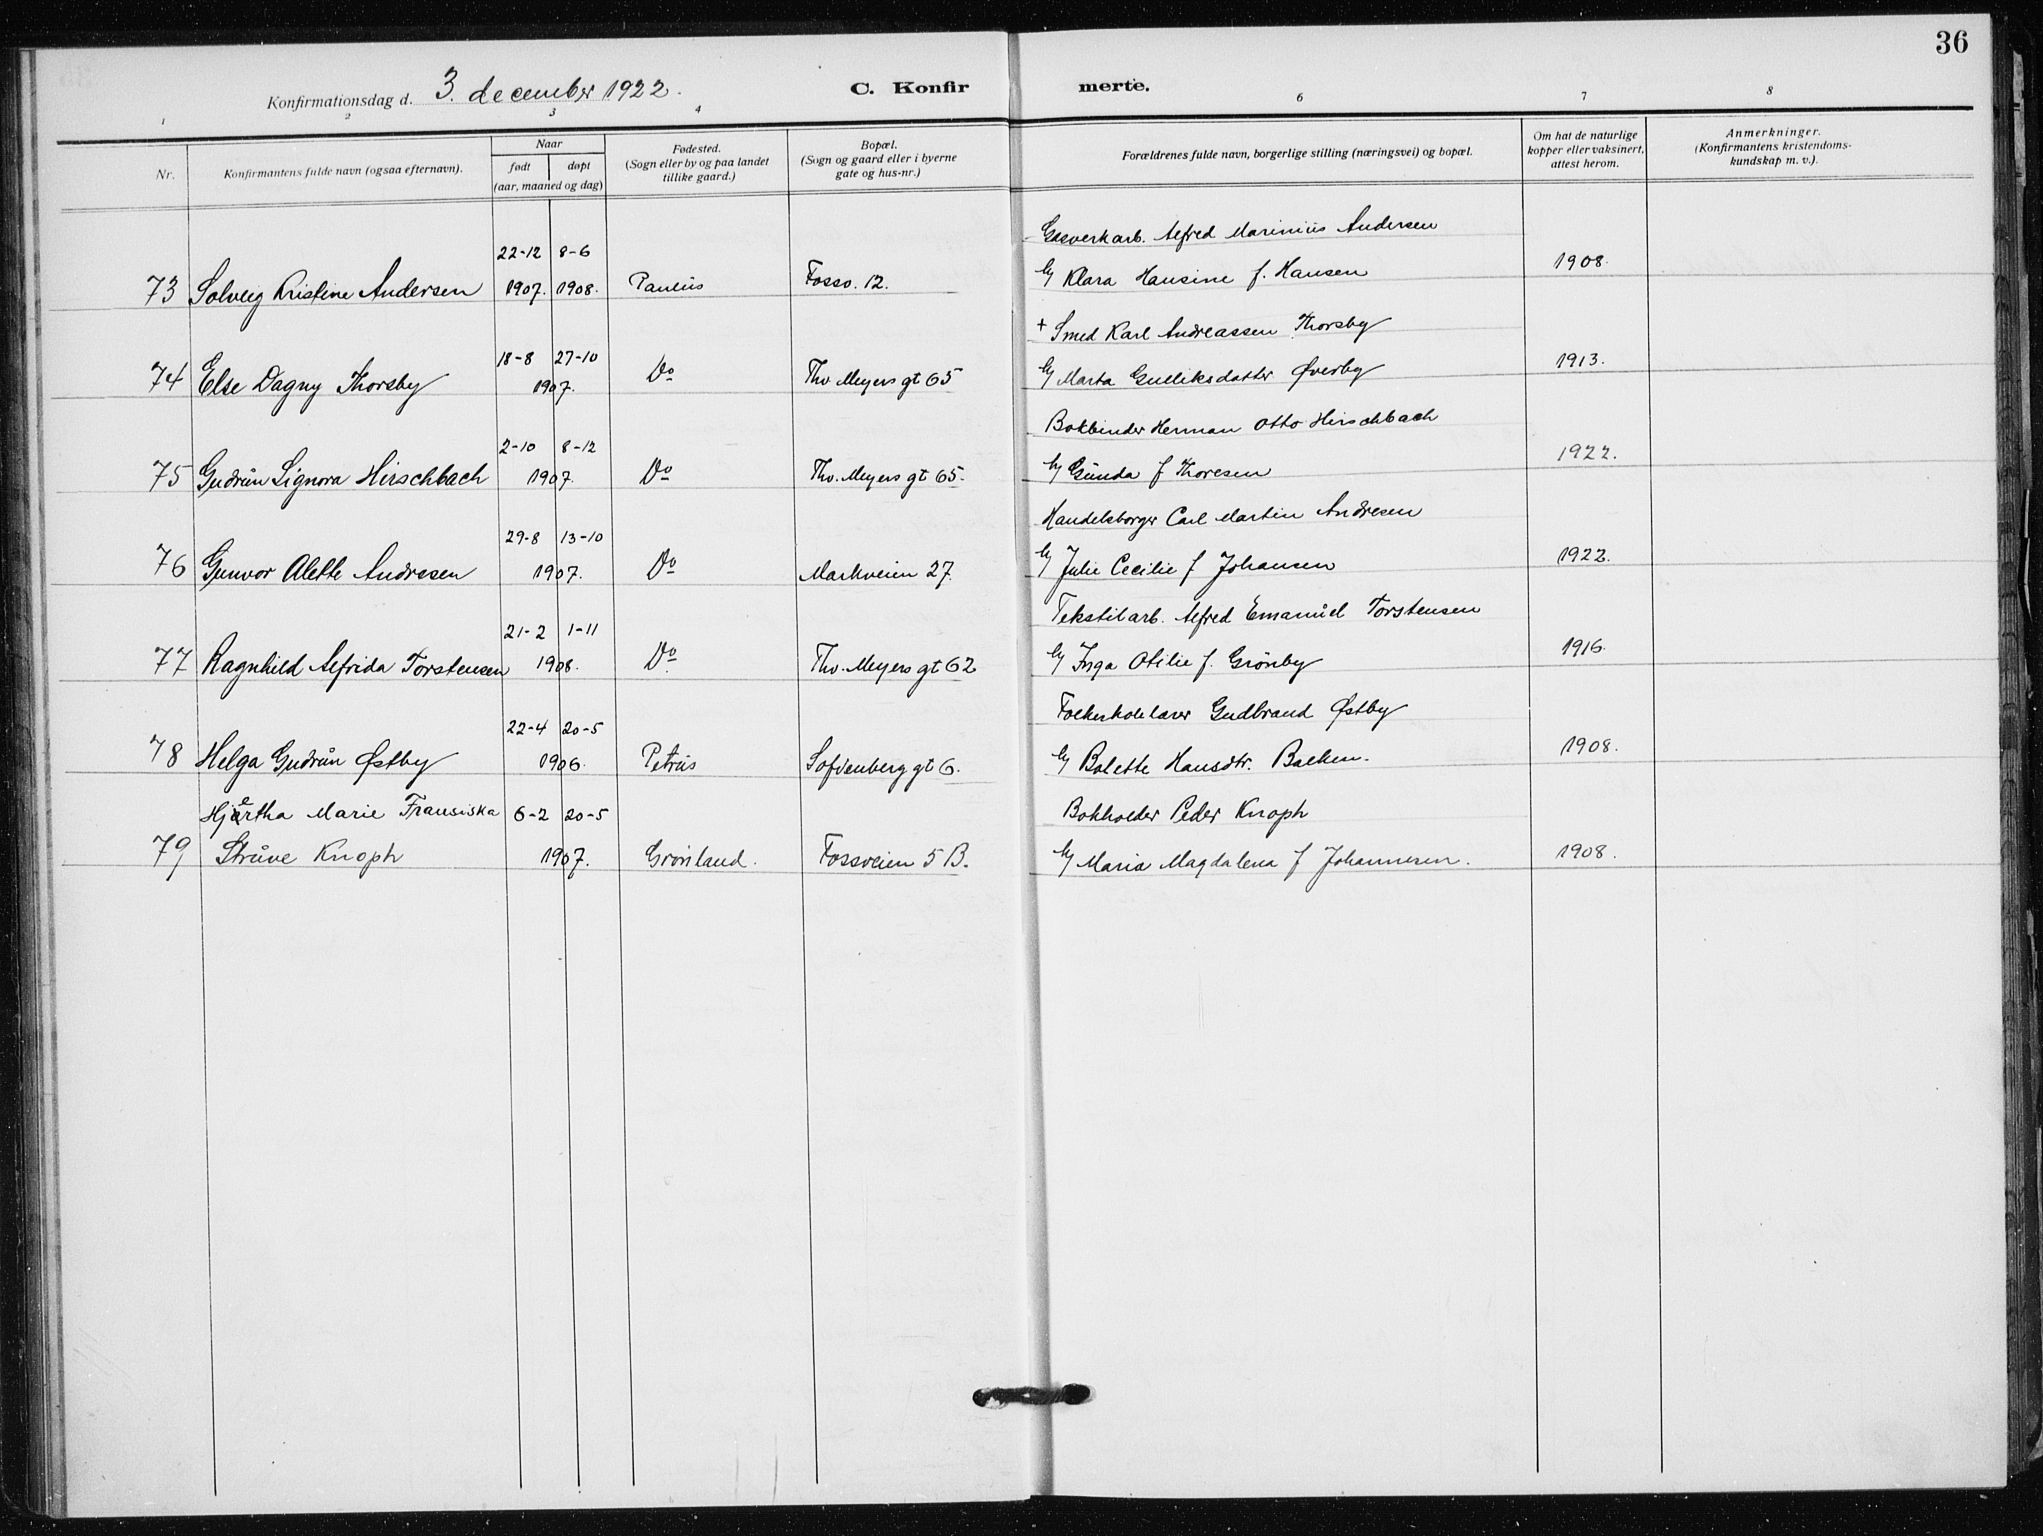 36
Konfirmationsdag d. 3. december 1922. C. Konfirmerte.
1 2 3 4 6 7 8
Nr. Konfirmantens fulde navn (ogsaa efternavn). Naar født døpt (aar, maaned og dag) Fødested. (Sogn eller by og paa landet tillike gaard.) Bopæl. (Sogn og gaard eller i byerne gate og hus-nr.) Forældrenes fulde navn, borgerlige stilling (næringsvei) og bopæl. Om hat de naturlige kopper eller vaksinert, attest herom. Anmerkninger. (Konfirmantens kristendomskundskap m. v.).
22-12 8-6 Gasverkarb. Alfred Marinius Andersen
73 Solveig Kristine Andersen 1907. 1908. Paulus Fossv. 12. og Klara Hansine f. Hansen 1908.
18-8 27-10 + Smed Karl Andreassen Thorsby
74 Else Dagny Thorsby 1907. Do Thv Meyers gt 65 og Marta Gulliksdatter Øverby 1913.
2-10 8-12 Bokbinder Herman Otto Hirschbach
75 Gudrun Signora Hirschbach 1907. Do Thv. Meyers gt 65. og Gunda f Thoresen 1922.
29-8 13-10 Handelsborger Carl Martin Andresen
76 Gunvor Alette Andresen 1907. Do Markveien 27. og Julie Cecilie f Johansen 1922.
21-2 1-11 Tekstilarb. Alfred Emanuel Torstensen
77 Ragnhild Alfrida Torstensen 1908. Do Thv. Meyers gt 62 og Inga Otilie f. Grønby 1916.
22-4 20-5 Folkeskolelærer Gudbrand Østby
78 Helga Gudrun Østby 1906. Petrus Sofienberggt 6. og Bolette Hansdtr. Bakken. 1908.
Hjertha Marie Fransiska 6-2 20-5 Bokholder Peder Knoph
79 Struve Knoph 1907. Grønland. Fossveien 5 B. og Maria Magdalena f Johannesen. 1908.